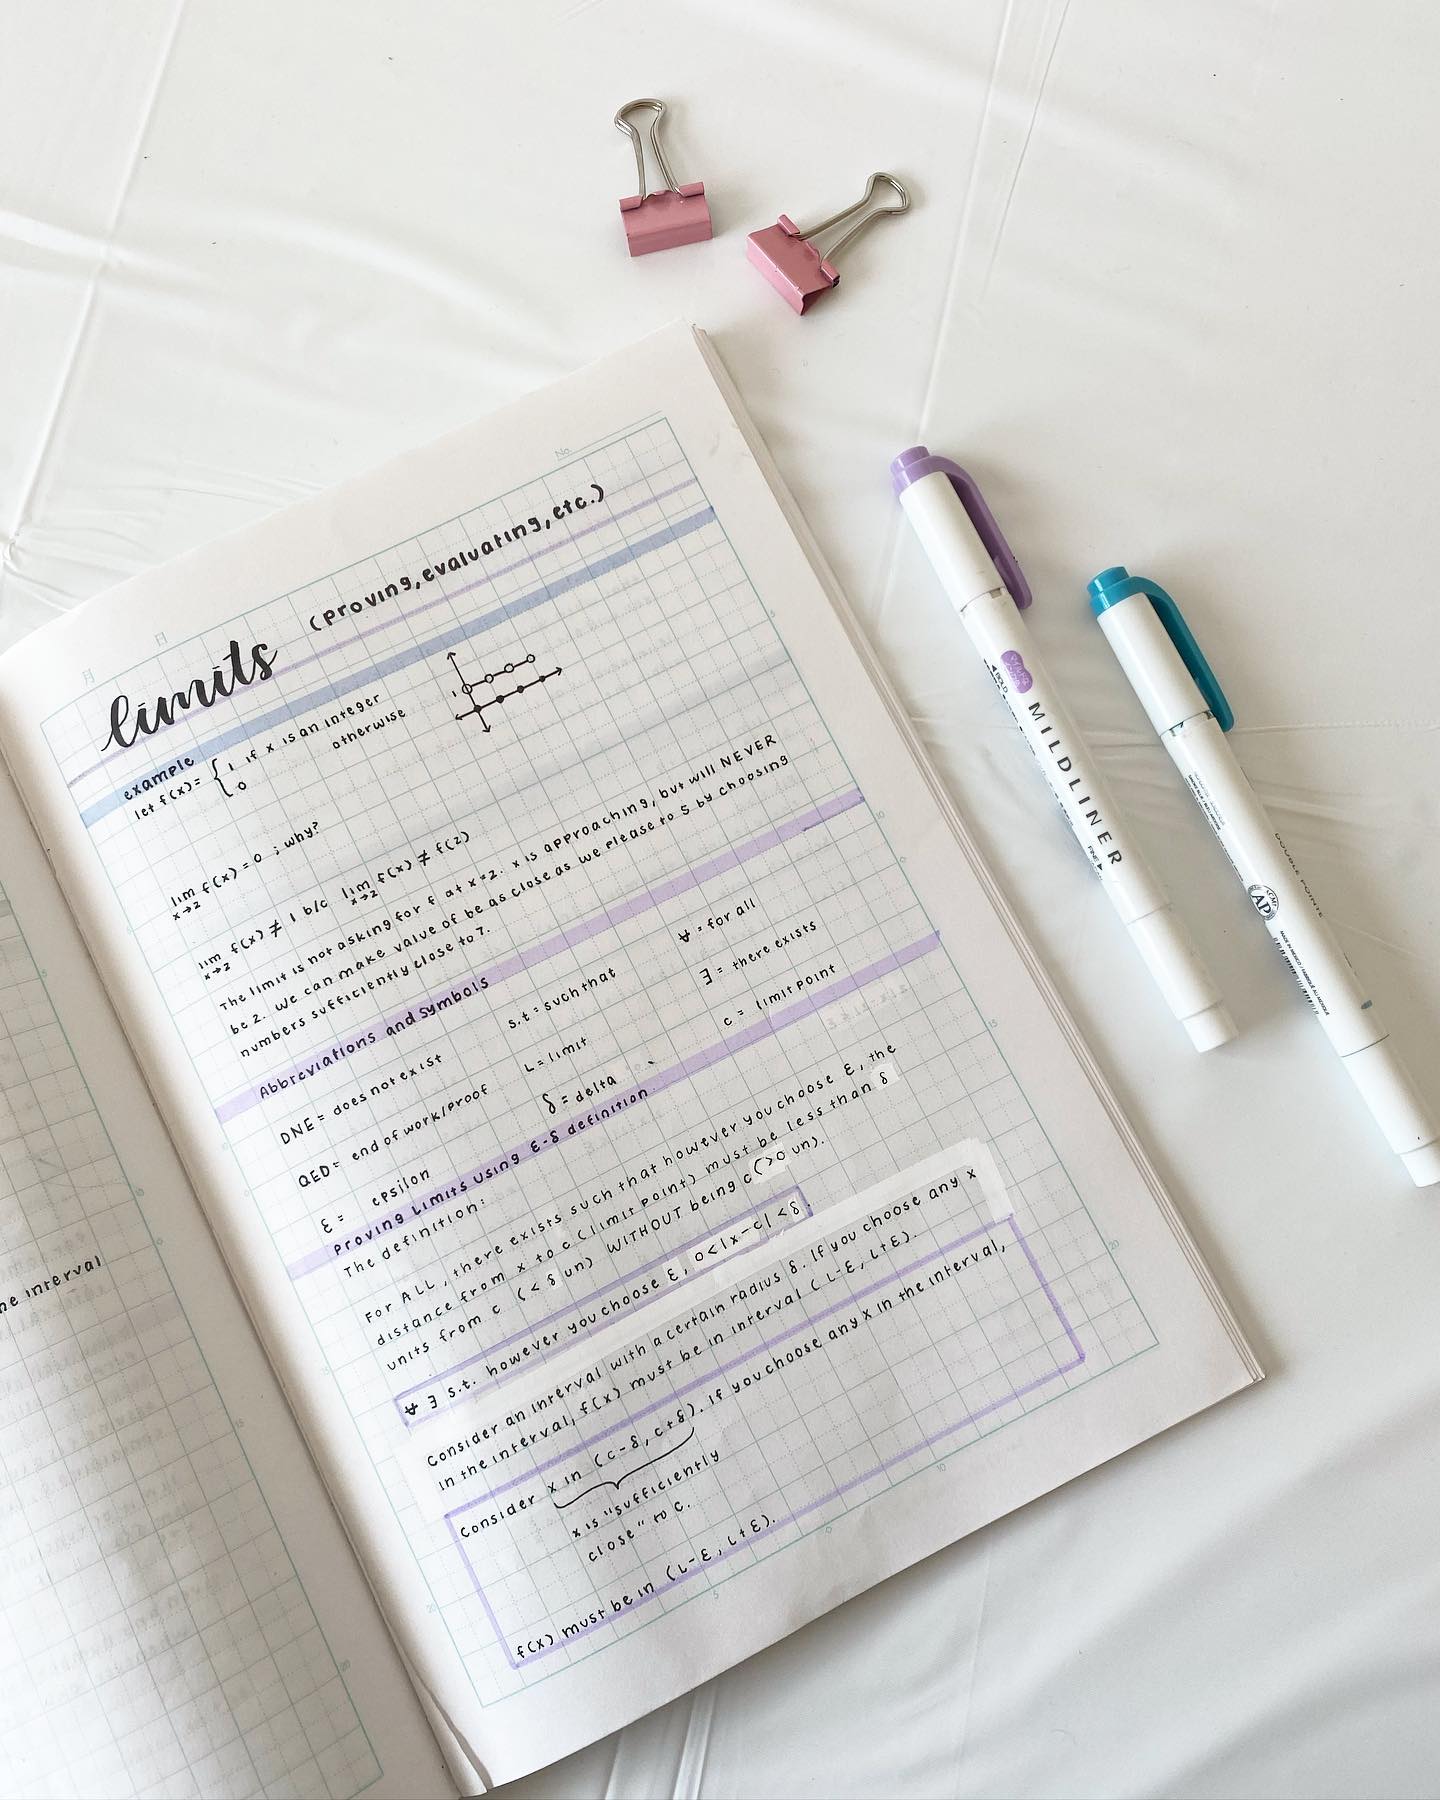 he interval
No.
月 日
limits (proving, evaluating, etc.)
example
let f(x) = { 1 if x is an integer
0 otherwise
1
lim f(x) = 0 ; why?
x→2
lim f(x) ≠ 1 b/c lim f(x) ≠ f(2)
x→2 x→2
The limit is not asking for f at x=2. x is approaching, but will NEVER
be 2. We can make value of be as close as we please to 5 by choosing
numbers sufficiently close to 7.
Abbreviations and symbols
DNE = does not exist s.t = such that ∀ = for all
QED = end of work/proof L = limit ∃ = there exists
ε = epsilon δ = delta c = limit point
Proving Limits using ε-δ definition
The definition:
For ALL, there exists such that however you choose ε, the
distance from x to c (limit point) must be less than δ
units from c (< δ un) WITHOUT being c (>0 un).
∀ ∃ s.t. however you choose ε, 0<|x-c| <δ.
Consider an interval with a certain radius δ. If you choose any x
in the interval, f(x) must be in interval (L-ε, L+ε).
Consider x in (c-δ, c+δ). If you choose any x in the interval,
x is "sufficiently
close" to c.
f(x) must be in (L-ε, L+ε).
5
10
15
20
BOLD MILDLINER FINE
DOUBLE POINTE
ACMI
AP
MADE IN MEXICO